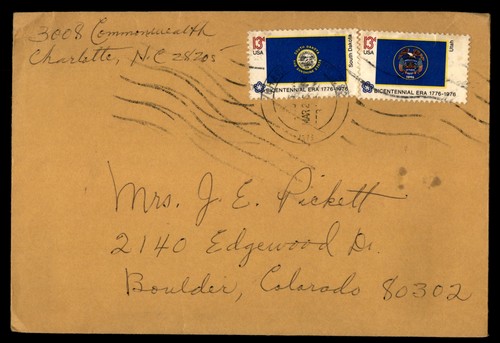 3008 Commonwealth
Charlotte, N.C 28205
13¢
USA
South Dakota
BICENTENNIAL ERA 1776-1976
13¢
USA
Utah
BICENTENNIAL ERA 1776-1976
MAR 2
Mrs. J. E. Pickett
2140 Edgewood Dr.
Boulder, Colorado 80302